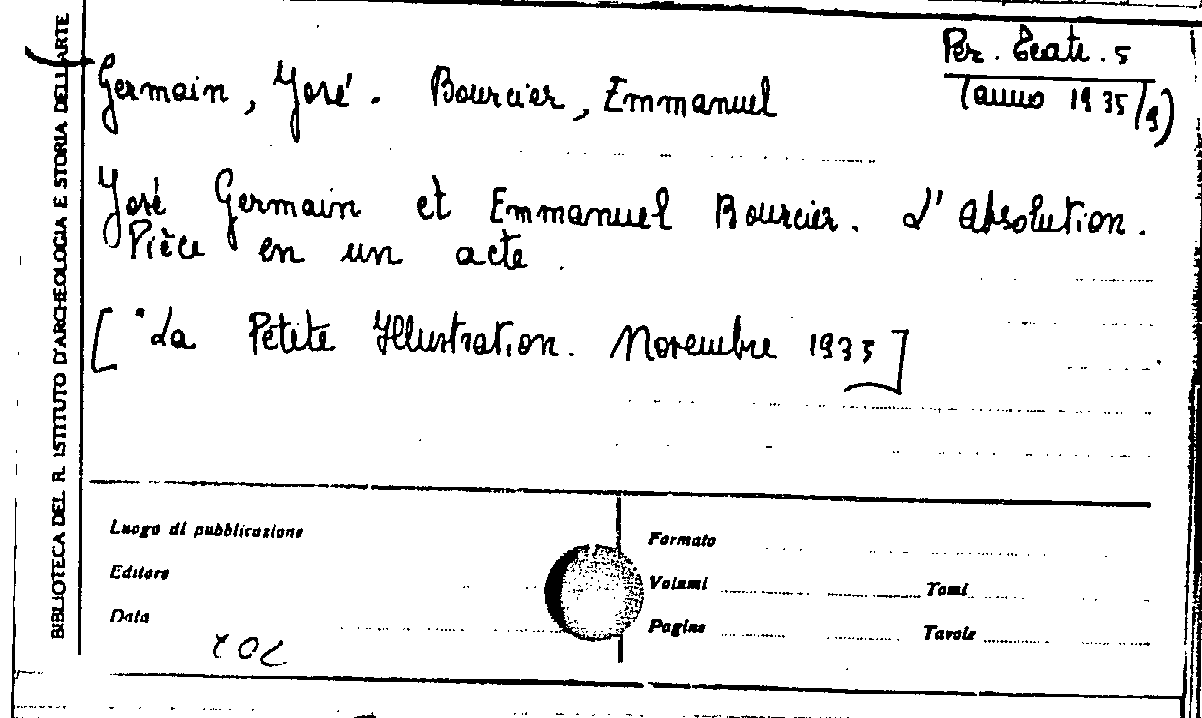 Per. Teatr. 5
(anno 1935/9)
Germain, José. Bourcier, Emmanuel
José Germain et Emmanuel Bourcier. L'absolution.
Pièce en un acte.
["La Petite Illustration. Novembre 1935]
BIBLIOTECA DEL R. ISTITUTO D'ARCHEOLOGIA E STORIA DELL'ARTE
Luogo di pubblicazione
Editore
Data
Formato
Volumi Tomi
Pagine Tavole